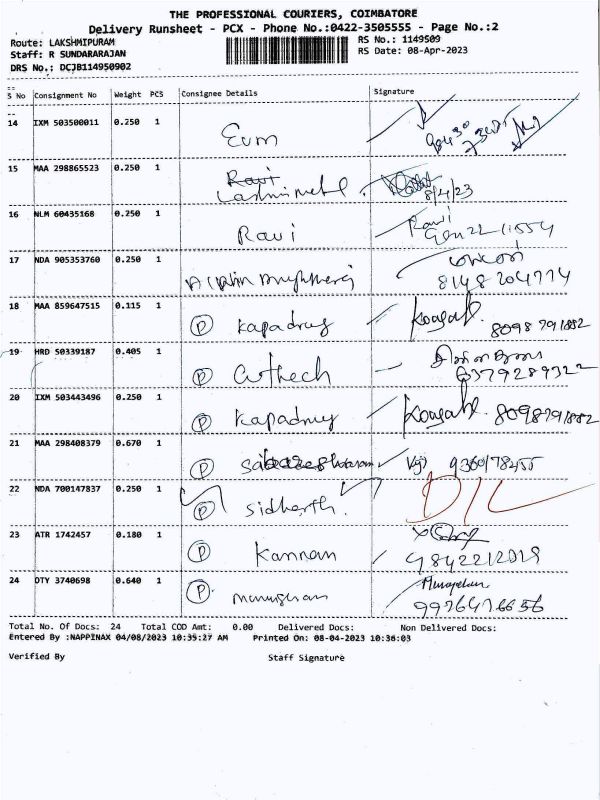 THE PROFESSIONAL COURIERS, COIMBATORE
Delivery Runsheet - PCX - Phone No.:0422-3505555 - Page No.:2
Route: LAKSHMIPURAM
RS No.: 1149509
Staff: R SUNDARARAJAN
RS Date: 08-Apr-2023
DRS No.: DCJB114950902
S No Consignment No Weight PCS Consignee Details Signature
14 IXM 503500011 0.250 1
15 MAA 298865523 0.250 1 8/4/23
16 NLM 60435168 0.250 1 Ravi Ravi
17 NDA 905353760 0.250 1 8148204774
18 MAA 859647515 0.115 1 P Kapadrug 8098791882
19 HRD 50339187 0.405 1 P 6379289322
20 IXM 503443496 0.250 1 P Kapadrug 8098791882
21 MAA 298408379 0.670 1 P 9360178455
22 NDA 700147837 0.250 1 P Sidharth. D/L
23 ATR 1742457 0.180 1 P Kannan 9842212019
24 OTY 3740698 0.640 1 P Murugesan 9976476656
Total No. Of Docs: 24 Total COD Amt: 0.00 Delivered Docs: Non Delivered Docs:
Entered By :NAPPINAX 04/08/2023 10:35:27 AM Printed On: 08-04-2023 10:36:03
Verified By Staff Signature